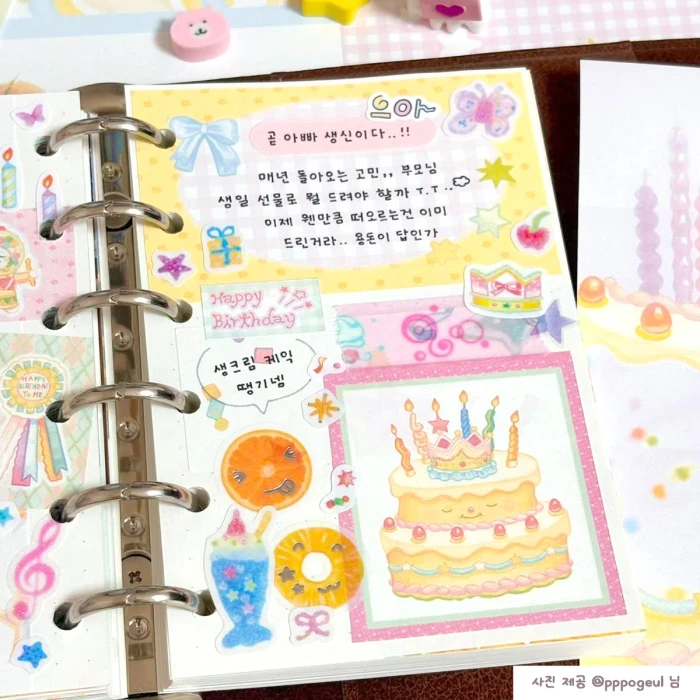 으아
곧 아빠 생신이다..!!
매년 돌아오는 고민,, 부모님
생일 선물로 뭘 드려야 할까 T.T ..
이제 웬만큼 떠오르는건 이미
드린거라.. 용돈이 답인가
Happy
Birthday
생크림 케익
땡기넴
HAPPY
BIRTHDAY
TO ME
사진 제공 @pppogeul 님